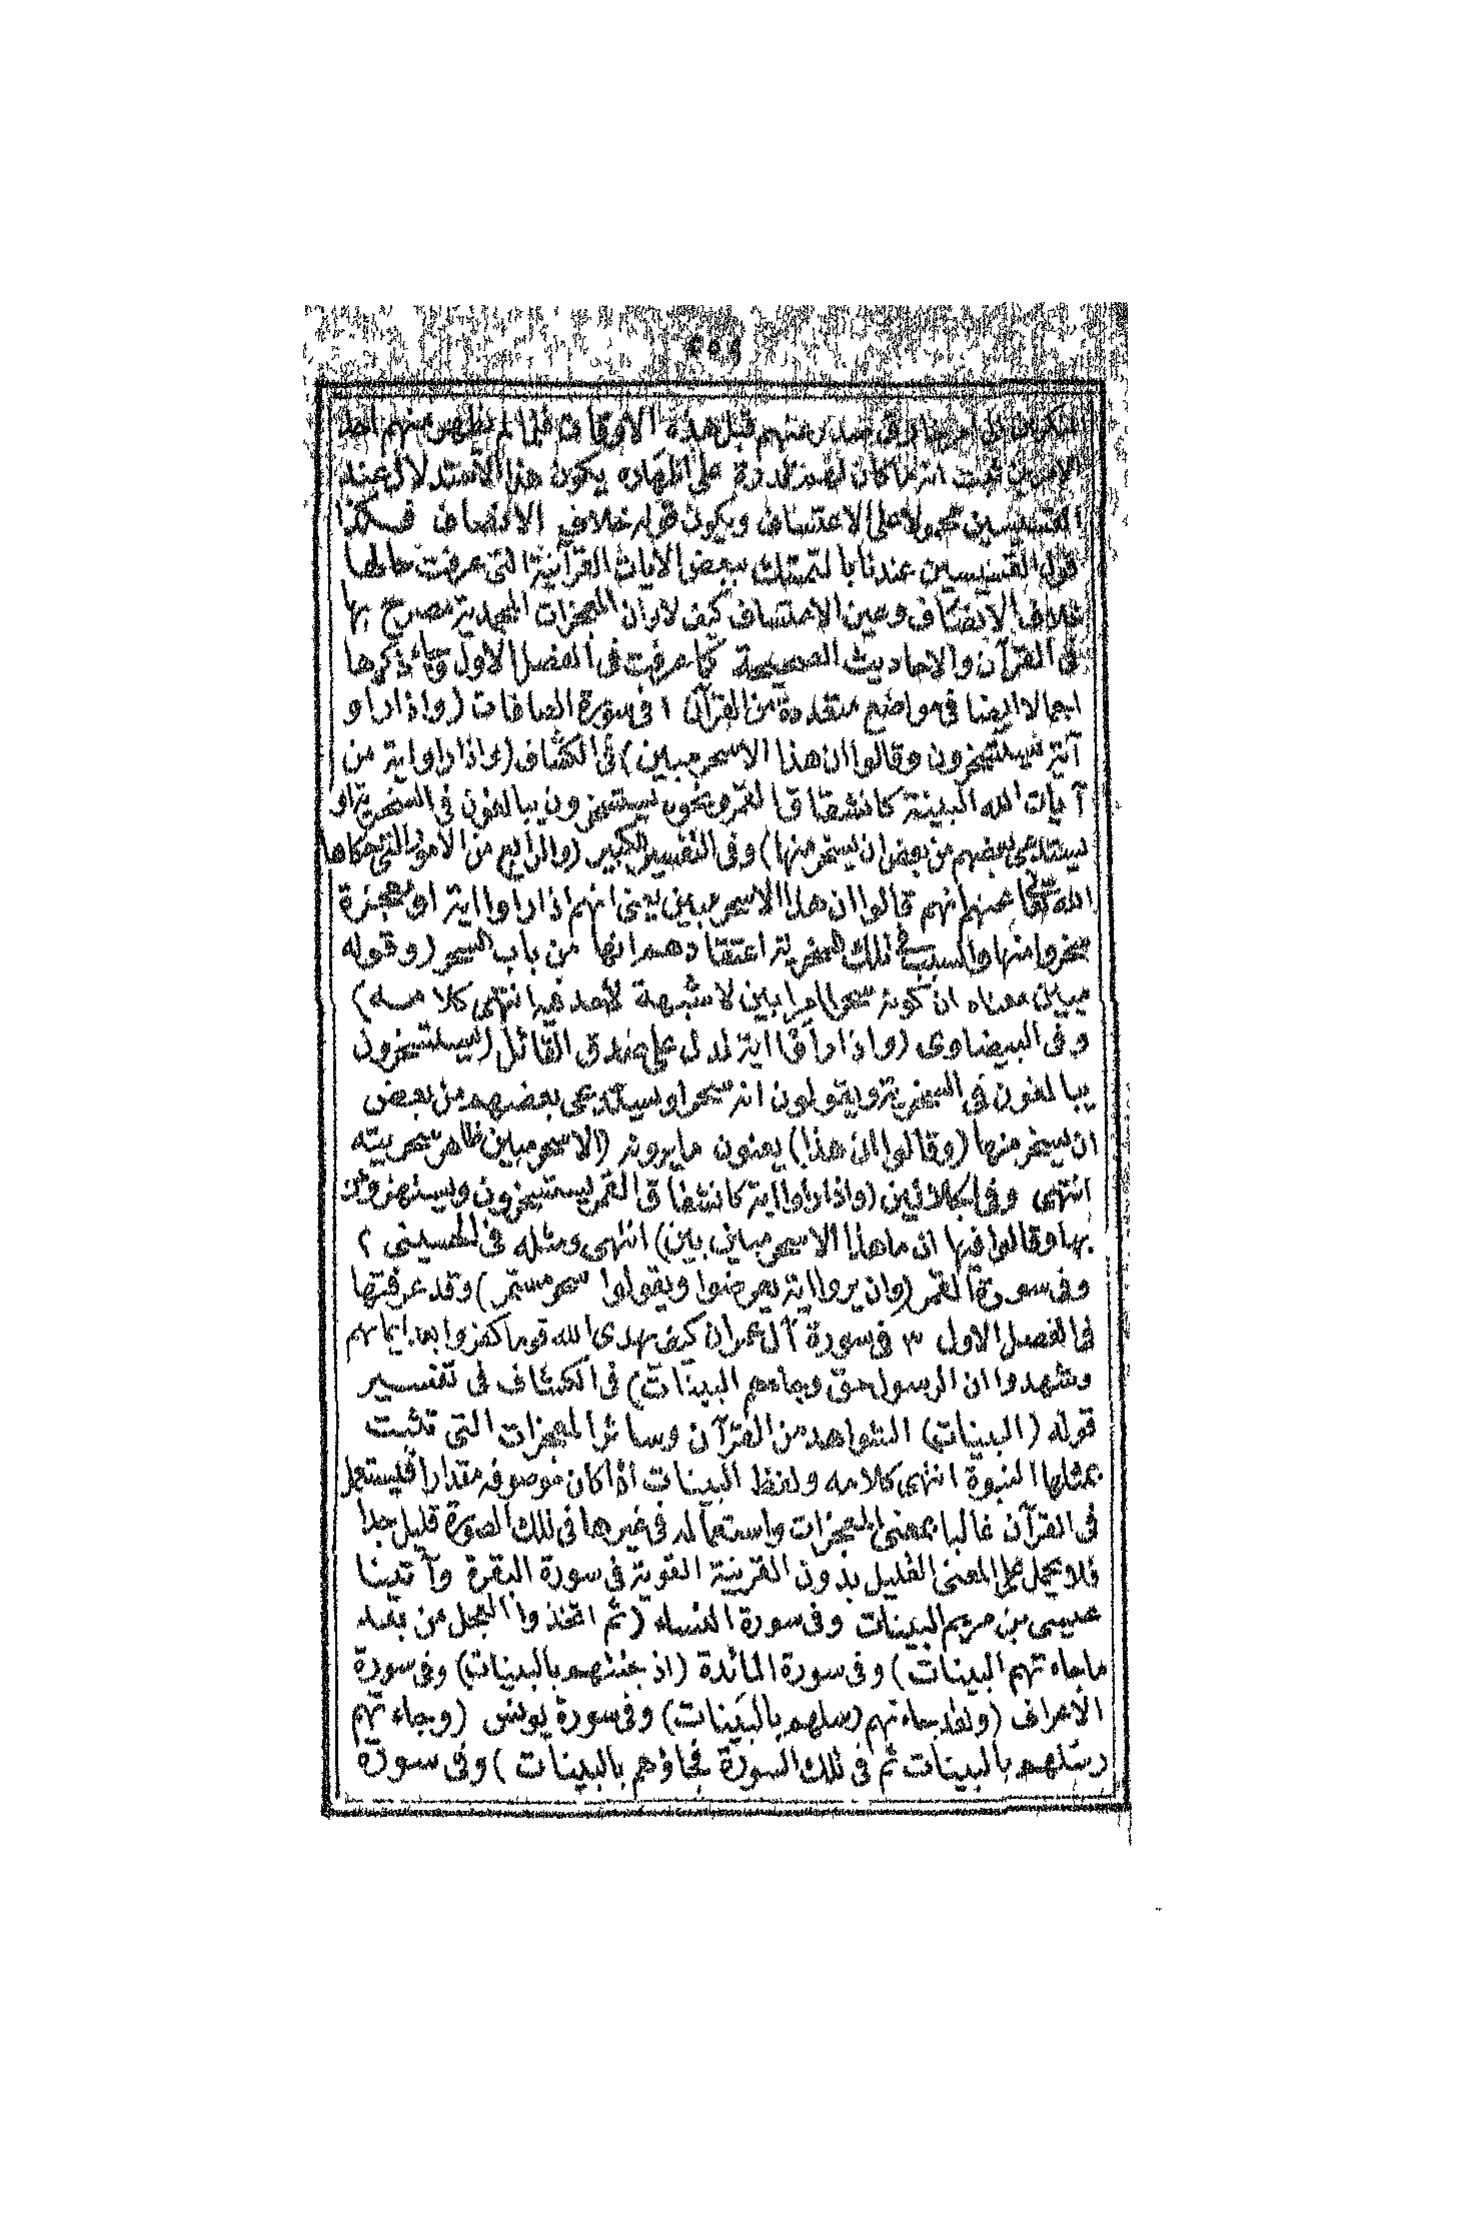 منهم قبل هذه الاوقات فلما لم يظهر منهم احد
الامرين ثبت انه ما كان لهم قدرة على اظهاره يكون هذا الاستدلال عند
القسيسين محمولا على الاعتساف ويكون قوله خلاف الانصاف فكذا
قول القسيسين عندنا بالتمسك ببعض الايات القرآنية التى عرفت حالها
خلاف الانصاف وعين الاعتساف كيف لا وان المعجزات المحمدية مصرح بها
فى القرآن والاحاديث الصحيحة كما عرفت فى الفصل الاول وجاء ذكرها
اجمالا ايضا فى مواضع متعددة من القرآن ١ فى سورة الصافات (واذا راو
آية يستسخرون وقالوا ان هذا الا سحر مبين) فى الكشاف (واذا راوا اية من
آيات الله البينة كانشقاق القمر ونحوه يستسخرون يبالغون فى السخرية او
يستدعى بعضهم من بعض ان يسخر منها) وفى التفسير الكبير (والرابع من الامور التى حكاها
الله تعالى عنهم انهم قالوا ان هذا الا سحر مبين يعنى انهم اذا راوا اية او معجزة
سخروا منها والسبب فى تلك السخرية اعتقادهم انها من باب السحر (وقوله
مبين معناه ان كونه سحرا امرا بين لا شبهة لاحد فيه انتهى كلامه)
وفى البيضاوى (واذا راوا اية تدل على صدق القائل (يستسخرون
يبالغون فى السخرية ويقولون انه سحر او يستدعى بعضهم من بعض
ان يسخر منها (وقالوا ان هذا) يعنون ما يرونه (الا سحر مبين ظاهر سحريته
انتهى وفى الجلالين (واذا راوا اية كانشقاق القمر يستسخرون ويستهزؤن
بها وقالوا فيها ان ما هذا الا سحر مبين بين) انتهى ومثله فى الحسينى ٢
وفى سورة القمر (وان يروا اية يعرضوا ويقولوا سحر مستمر) وقد عرفتها
فى الفصل الاول ٣ فى سورة آل عمران كيف يهدى الله قوما كفروا بعد ايمانهم
وشهدوا ان الرسول حق وجاءهم البينات) فى الكشاف فى تفسير
قوله (البينات) الشواهد من القرآن وسائر المعجزات التى تثبت
بمثلها النبوة انتهى كلامه ولفظ البينات اذا كان موصوفه مقدرا فيستعمل
فى القرآن غالبا بمعنى المعجزات واستعماله فى غيرها فى تلك الصورة قليل جدا
فلا يحمل على المعنى القليل بدون القرينة القوية فى سورة البقرة وآتينا
عيسى بن مريم البينات وفى سورة النساء (ثم اتخذوا العجل من بعد
ما جاءتهم البينات) وفى سورة المائدة (اذ جئتهم بالبينات) وفى سورة
الاعراف (ولقد جاءتهم رسلهم بالبينات) وفى سورة يونس (وجاءتهم
رسلهم بالبينات ثم فى تلك السورة فجاؤهم بالبينات) وفى سورة